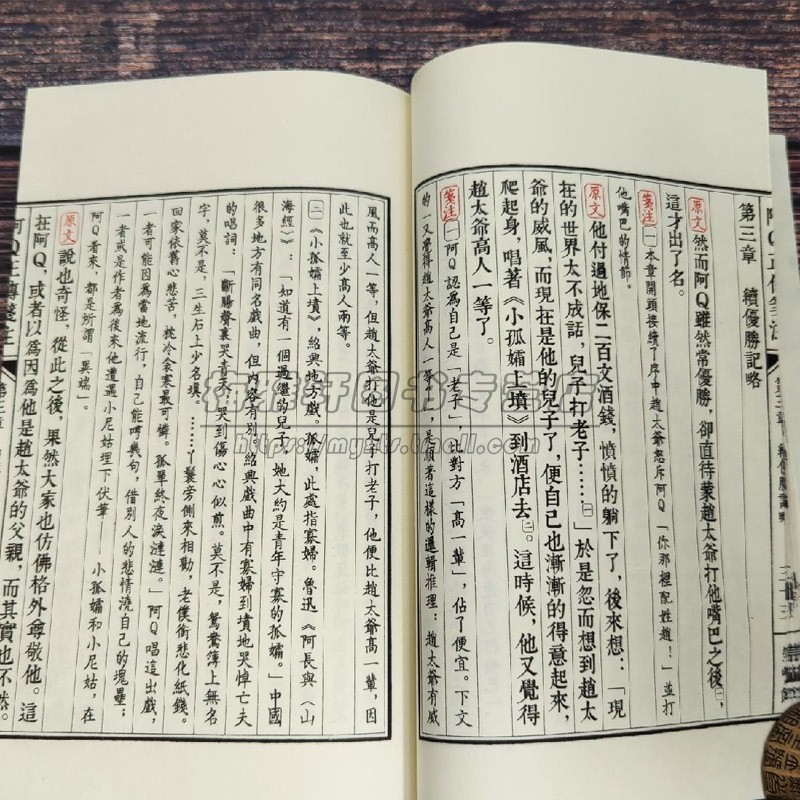 第三章　續優勝記略
原文 然而阿Q雖然常優勝，卻直待蒙趙太爺打他嘴巴之後㈠，
這才出了名。
箋注 ㈠本章開頭接續了序中趙太爺怒斥阿Q「你那裡配姓趙！」並打
他嘴巴的情節。
原文 他付過地保二百文酒錢，憤憤的躺下了，後來想：「現
在的世界太不成話，兒子打老子……㈠」於是忽而想到趙太
爺的威風，而現在是他的兒子了，便自己也漸漸的得意起來，
爬起身，唱著《小孤孀上墳》到酒店去㈡。這時候，他又覺得
趙太爺高人一等了。
箋注 ㈠阿Q認為自己是「老子」，比對方「高一輩」，佔了便宜。下文
的「又覺得趙太爺高人一等」，是順著這樣的邏輯推理：趙太爺有威
風而高人一等，但趙太爺打他是兒子打老子，他便比趙太爺高一輩，因
此也就至少高人兩等。
㈡《小孤孀上墳》，紹興地方戲。孤孀，此處指寡婦。魯迅《阿長與〈山
海經〉》：「知道有一個過繼的兒子，她大約是青年守寡的孤孀。」中國
很多地方有同名戲曲，但內容有別。紹興戲曲中有寡婦到墳地哭悼亡夫
的唱詞：「斷腸聲裏哭青天，哭到傷心心似煎。莫不是，鴛鴦簿上無名
字，莫不是，三生石上少名填。……丫鬟旁側來相勸，老僕銜悲化紙錢。
回家依舊心悲苦，枕冷衾寒最可憐。孤單終夜淚漣漣。」阿Q唱這出戲，
一者可能因為當地流行，自己能哼幾句，借別人的悲情澆自己的塊壘；
一者或是作者為後來他遭遇小尼姑埋下伏筆——小孤孀和小尼姑，在
阿Q看來，都是所謂「異端」。
原文 說也奇怪，從此之後，果然大家也仿佛格外尊敬他。這
在阿Q，或者以為因為他是趙太爺的父親，而其實也不然。
阿Q正傳箋注
杏雅軒图书专营店
http://mysts.tmall.com